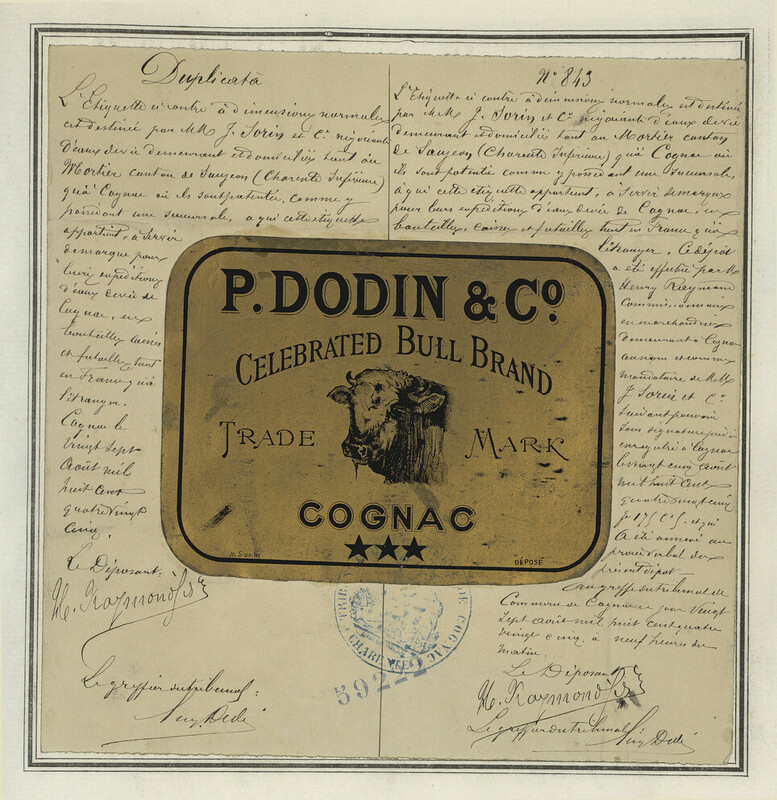 Duplicata
L'Etiquette ci contre à dimensions normales
est destinée par MM. J. Sorin et Cie négociants
d'eaux de vie demeurant et domiciliés tant au
Mortier canton de Saujeon (Charente Inférieure)
qu'à Cognac où ils sont patentés, comme y
possédant une succursale, à qui cette etiquette
appartient, à servir
de marque pour
leurs expéditions
d'eaux de vie de
Cognac, en
bouteilles, caisses
et futailles tant
en France qu'à
l'étranger.
Cognac le
vingt sept
août mil
huit cent
quatre vingt
cinq.
Le Déposant:
H. Raymond
Le greffier du tribunal:
N° 843
L'Etiquette ci contre à dimensions normales est destinée
par MM. J. Sorin et Cie négociants d'eaux de vie
demeurant et domiciliés tant au Mortier canton
de Saujeon (Charente Inférieure) qu'à Cognac où
ils sont patentés comme y possédant une succursale,
à qui cette etiquette appartient, à servir de marque
pour leurs expéditions d'eaux de vie de Cognac, en
bouteilles, caisses et futailles tant en France qu'à
l'étranger. Ce dépôt
a été effectué par M.
Henry Raymond
Commissionnaire
en marchandises
demeurant à Cognac
au nom et comme
mandataire de MM.
J. Sorin et Cie
suivant pouvoir
sous signature privée
enregistré à Cognac
le vingt cinq août
mil huit cent
quatre vingt cinq
et qui
A été annexé au
procès verbal du
présent dépôt.
Au greffe du tribunal de
Commerce de Cognac ce jour vingt
sept août mil huit cent quatre
vingt cinq à neuf heures du
matin.
Le Déposant
H. Raymond
Le greffier du tribunal
P. DODIN & Co.
CELEBRATED BULL BRAND
TRADE MARK
COGNAC
DÉPOSÉ
DE COGNAC
CHARENTE
59222